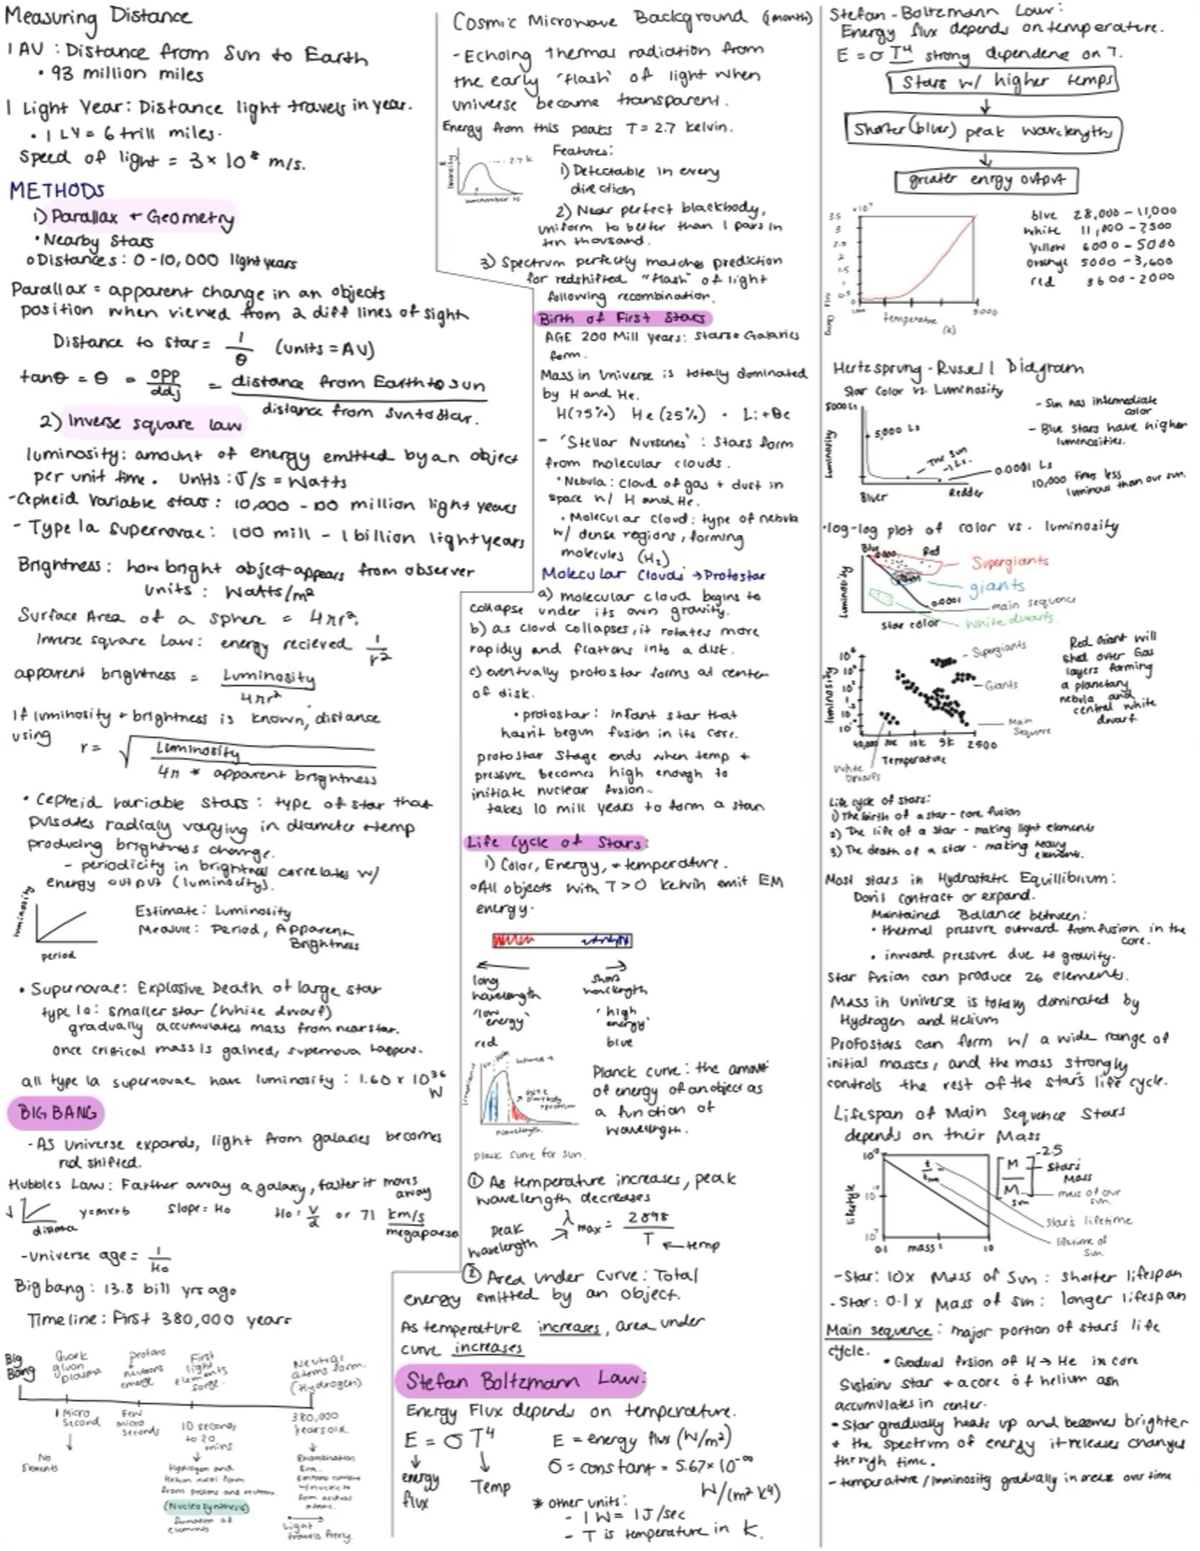 Measuring Distance
1 AU : Distance from Sun to Earth
• 93 million miles
1 Light Year: Distance light travels in year.
• 1 LY = 6 trill miles.
Speed of light = 3 × 10⁸ m/s.
METHODS
1) Parallax + Geometry
• Nearby Stars
o Distances: 0-10,000 light years
Parallax = apparent change in an objects
position when viewed from 2 diff lines of sight
Distance to star = 1/θ (units = AU)
tanθ = θ = opp/adj = distance from Earth to sun
distance from sun to star.
2) Inverse square law
luminosity: amount of energy emitted by an object
per unit time. Units: J/s = Watts
- Cepheid Variable stars: 10,000 - 100 million light years
- Type 1a Supernovae: 100 mill - 1 billion light years
Brightness: how bright object appears from observer
units: Watts/m²
Surface Area of a sphere = 4πr².
Inverse square Law: energy recieved 1/r²
apparent brightness = Luminosity/4πr²
If luminosity + brightness is known, distance
using
r = √ Luminosity
4π * apparent brightness
• Cepheid variable stars: type of star that
pulsates radialy varying in diameter + temp
producing brightness change.
- periodicity in brightness correlates w/
energy output (luminosity).
luminosity
period
Estimate: Luminosity
Measure: Period, Apparent
Brightness
• Supernovae: Explosive Death of large star
type 1a: smaller star (white dwarf)
gradually accumulates mass from near star.
once critical mass is gained, supernova happens.
all type 1a supernovae have luminosity: 1.60 x 10³⁶
W
BIG BANG
- As Universe expands, light from galaxies becomes
red shifted.
Hubbles Law: Farther away a galaxy, faster it moves
away
distance
y=mx+b slope = H₀ H₀ = v/d or 71 km/s
megaparsec
- Universe age = 1/H₀
Big bang: 13.8 bill yrs ago
Timeline: First 380,000 years
Big
Bang
Quark
gluon
plasma
protons
neutrons
emerge
First
light
elements
forge.
Neutral
atoms form.
(Hydrogen)
1 Micro
Second
Few
micro
seconds
10 seconds
to 20
mins
380,000
years old.
No
Elements
Hydrogen and
Helium nuclei form
from protons and neutrons.
(Nucleosynthesis)
formation of
elements
Light
travels freely.
Cosmic Microwave Background (month)
- Echoing thermal radiation from
the early "flash" of light when
universe became transparent.
Energy from this peaks T = 2.7 kelvin.
2.7 k
Features:
1) Detectable in every
direction
2) Near perfect blackbody,
uniform to better than 1 pars in
ten thousand.
3) Spectrum perfectly matches prediction
for redshifted "flash" of light
following recombination.
Birth of First Stars
AGE 200 Mill years: Stars + Galaxies
form.
Mass in Universe is totally dominated
by H and He.
H(75%) He(25%) • Li + Be
- 'Stellar Nurseries': Stars form
from molecular clouds.
• Nebula: cloud of gas + dust in
space w/ H and He.
• Molecular cloud: type of nebula
w/ dense regions, forming
molecules (H₂)
Molecular Clouds → Protostar
a) molecular cloud begins to
collapse under its own gravity.
b) as cloud collapses, it rotates more
rapidly and flattens into a disk.
c) eventually protostar forms at center
of disk.
• protostar: infant star that
hasn't begun fusion in its core.
protostar stage ends when temp +
pressure becomes high enough to
initiate nuclear fusion.
takes 10 mill years to form a star.
Life Cycle of Stars:
1) Color, Energy, + temperature.
o All objects with T > 0 kelvin emit EM
energy.
long
wavelength
'low
energy'
red
short
wavelength
'high
energy'
blue
wavelength
Planck curve for sun.
Planck curve: the amount
of energy of an object as
a function of
wavelength.
① As temperature increases, peak
wavelength decreases
peak
wavelength
λmax = 2898/T
temp
② Area under curve: Total
energy emitted by an object.
As temperature increases, area under
curve increases
Stefan Boltzmann Law:
Energy Flux depends on temperature.
E = σ T⁴
energy
flux
Temp
E = energy flux (W/m²)
σ = constant = 5.67×10⁻⁰⁸
W/(m² K⁴)
* other units:
- 1W = 1J/sec
- T is temperature in K.
Stefan-Boltzmann Law:
Energy flux depends on temperature.
E = σ T⁴ strong dependene on T.
Stars w/ higher temps
Shorter (bluer) peak wavelengths
greater enrgy output
temperature
(K)
blue 28,000 - 11,000
white 11,000 - 7500
Yellow 6000 - 5000
orange 5000 - 3,600
red 3600 - 2000
Hertzsprung-Russell Diagram
Star Color vs. Luminosity
Luminosity
5,000 Ls
The Sun
1 Ls.
0.0001 Ls
Bluer
Redder
- Sun has intermediate
color
- Blue stars have higher
luminosities.
10,000 times less
luminous than our sun.
• log-log plot of color vs. luminosity
Luminosity
Blue
Red
Supergiants
giants
0.0001
main sequence
star color
White dwarfs
luminosity
10⁶
Supergiants
Giants
Main
Sequence
40,000 20k 10k 5k 2500
Temperature
White
Dwarfs
Red Giant will
shed outer Gas
layers forming
a planetary
nebula and
central white
dwarf
Life cycle of stars:
1) The birth of a star - core fusion
2) The life of a star - making light elements
3) The death of a star - making heavy
elements.
Most stars in Hydrostatic Equilibrium:
Don't contract or expand.
Maintained Balance between:
• thermal pressure outward from fusion in the
core.
• inward pressure due to gravity.
Star fusion can produce 26 elements.
Mass in Universe is totally dominated by
Hydrogen and Helium
Protostars can form w/ a wide range of
initial masses, and the mass strongly
controls the rest of the star's life cycle.
Lifespan of Main Sequence Stars
depends on their Mass
0.1 mass 10
[M/M sun]^-2.5
star's
Mass
mass of our
sun.
star's lifetime
lifetime of
sun.
- Star: 10x Mass of Sun: shorter lifespan
- Star: 0.1x Mass of sun: longer lifespan
Main sequence: major portion of stars life
cycle.
• Gradual fusion of H → He in core
Sustain star + a core of helium ash
accumulates in center.
• Star gradually heats up and becomes brighter
+ the spectrum of energy it releases changes
through time.
- temperature/luminosity gradually increase over time